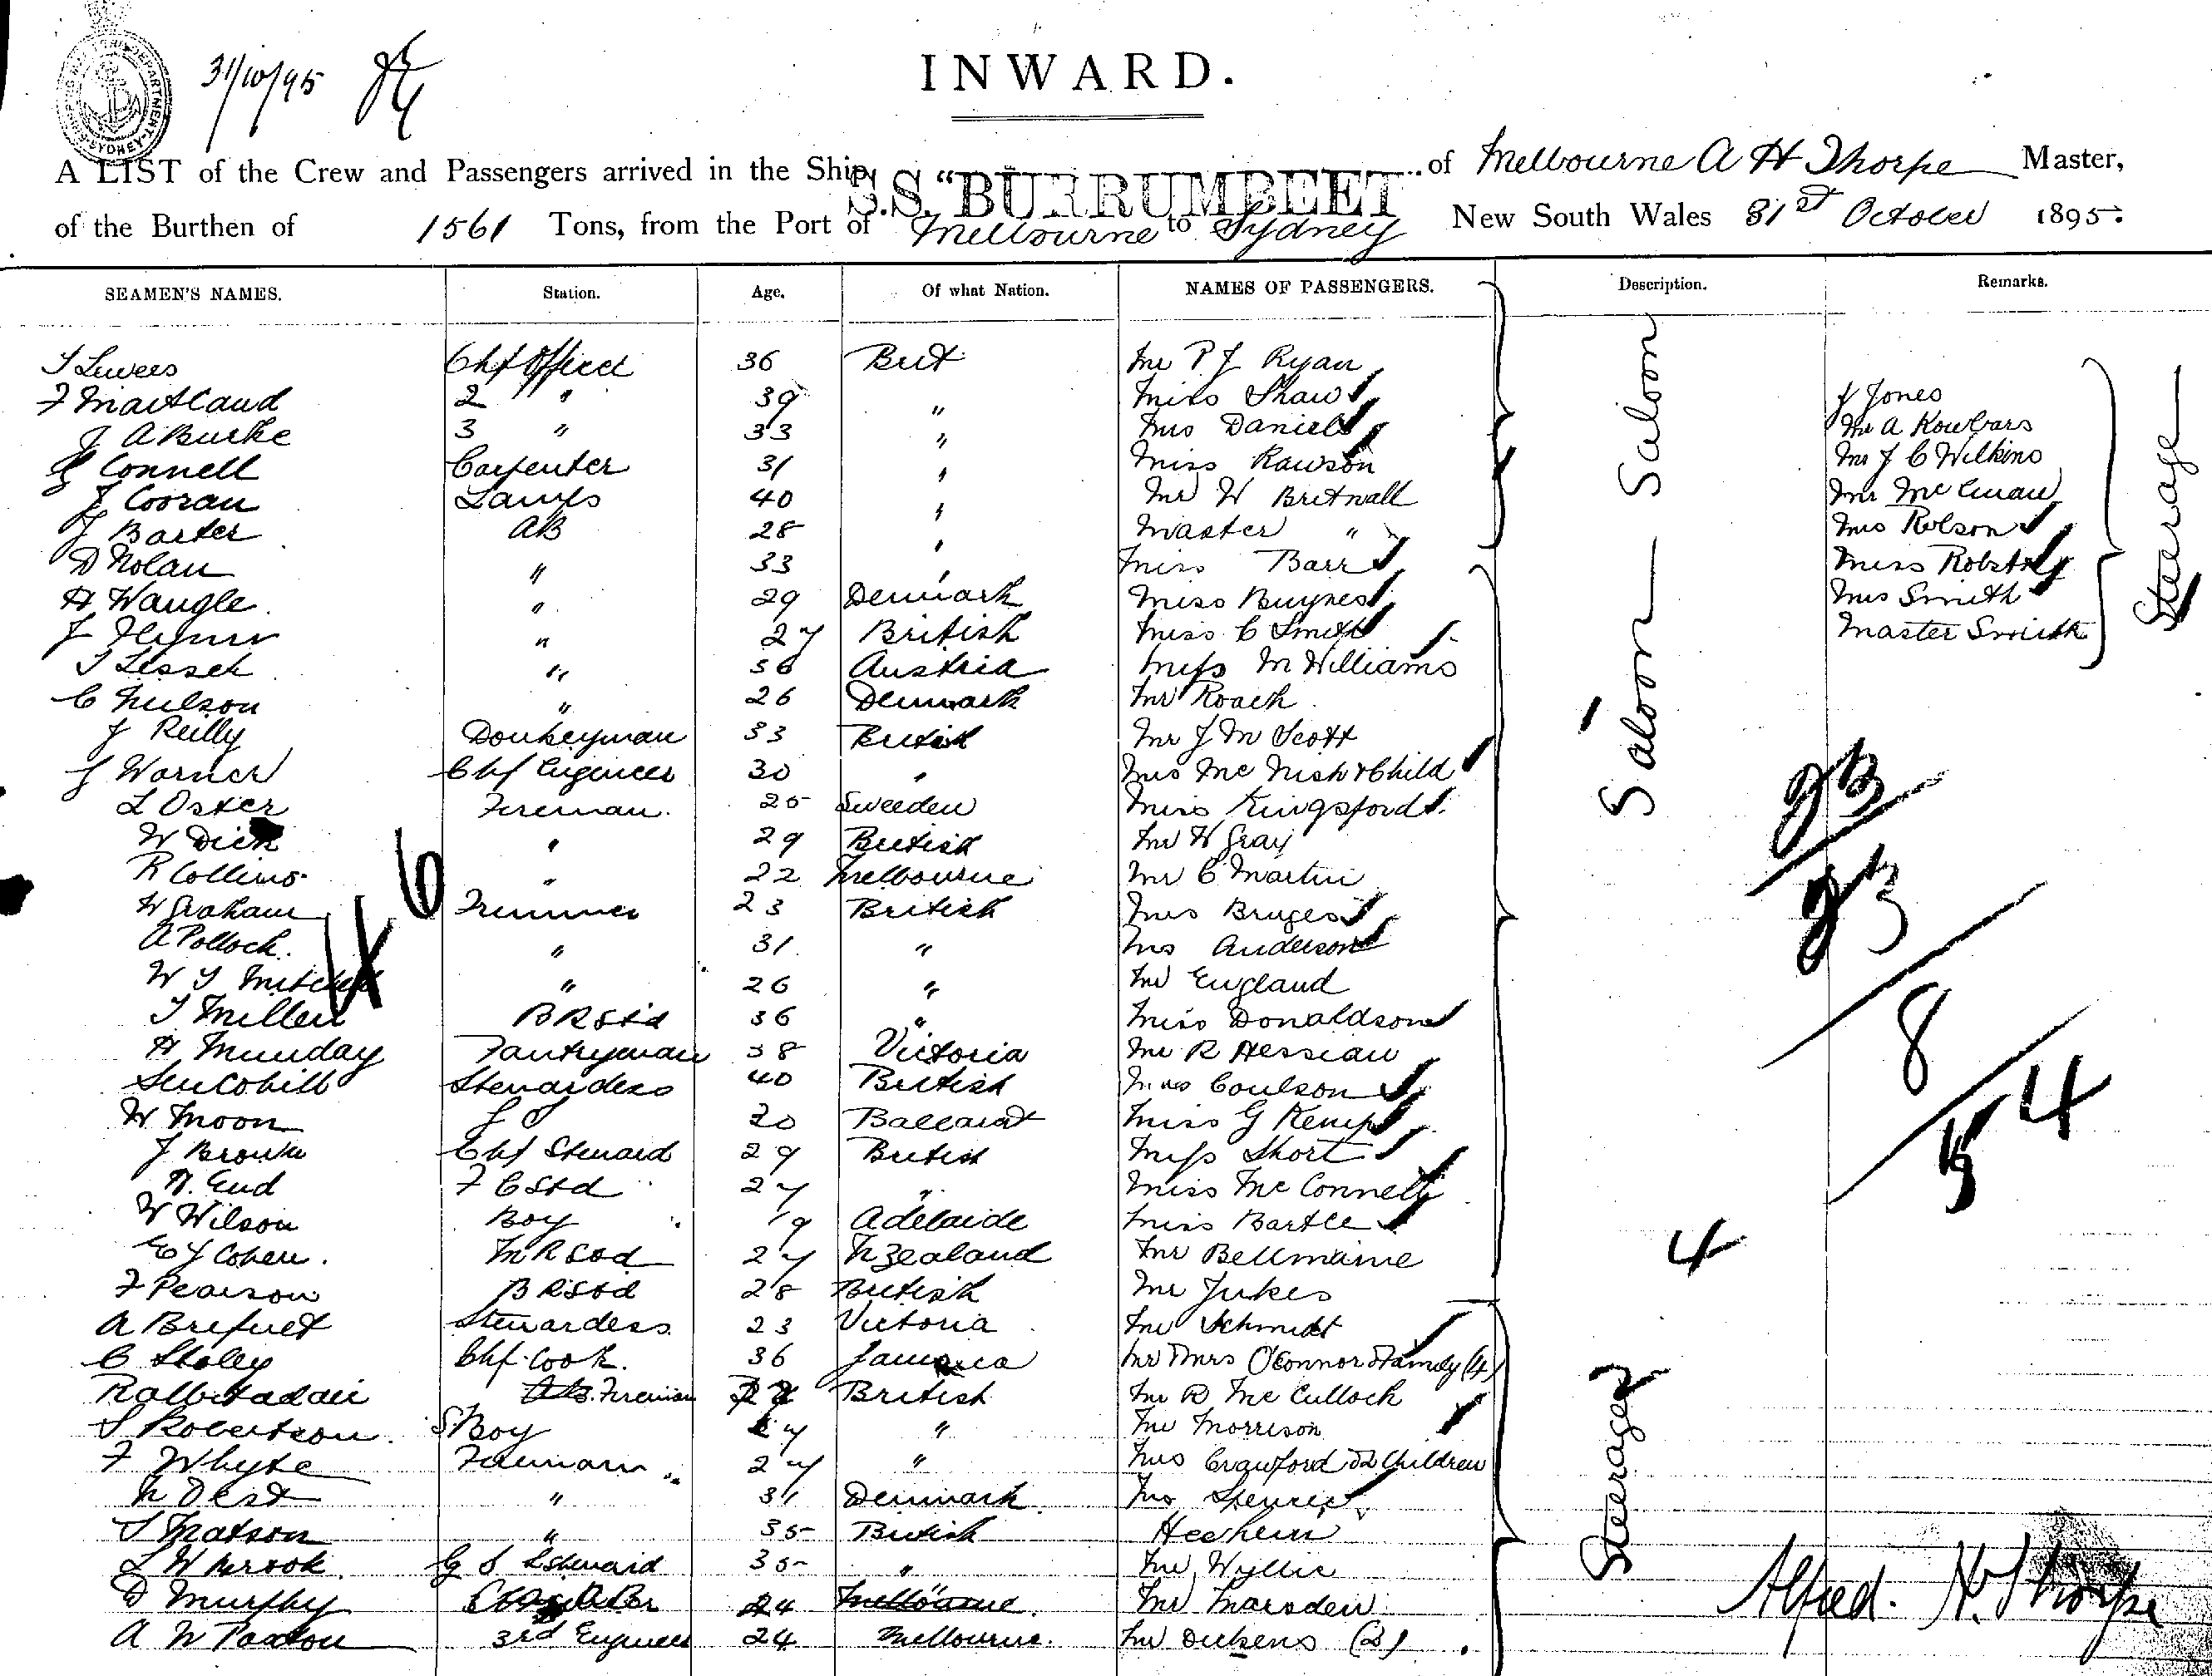 31/10/95
INWARD.
A LIST of the Crew and Passengers arrived in the Ship S.S. "BURRUMBEET of Melbourne A H Thorpe Master,
of the Burthen of 1561 Tons, from the Port of Melbourne to Sydney New South Wales 31st October 1895.
SEAMEN'S NAMES. Station. Age. Of what Nation. NAMES OF PASSENGERS. Description. Remarks.
Chf Officer 36 Brit Mr P J Ryan Saloon
F Maitland 2 " 39 " Miss Shaw J Jones Steerage
J A Burke 3 " 33 " Mrs Daniels Mr A Rowbars
G Connell Carpenter 31 " Miss Rawson Mr J C Wilkins
J Cooran Lamps 40 " Mr W Britnall
J Barter AB 28 " Master " Mrs Robson
D Nolan " 33 " Miss Barr Miss
H Waugle " 29 Denmark Miss Mrs Smith
J Flynn " 27 British Miss C Smith Master Smith
" 36 Austria Miss M Williams
C Neilson " 26 Denmark Mr Roach Saloon
J Reilly Donkeyman 33 British Mr J M Scott
J Warner Chf Engineer 30 " Mrs Mc Nish & Child
L Oster Fireman 25 Sweeden Miss Kingsford
W Dick " 29 British Mr W Gray
R Collins " 22 Melbourne Mr C Martin
W Graham Trimmer 23 British Mrs Bruges
A Pollock " 31 " Mrs Anderson
W J Mitchell " 26 " Mr England
T Miller B R Std 36 " Miss Donaldson
H Munday Pantryman 38 Victoria Mr R Hessian
Stewardess 40 British Mrs Coulson
W Moon 20 Ballarat Miss G Kemp
J Brown Chf Steward 29 British Miss Short
F C Std 27 " Miss Mc Connell
W Wilson Boy 19 Adelaide Miss Bartle
E J Cohen M R Std 27 N Zealand Mr Bellmaine
F Pearson B R Std 28 British Mr Jukes
A Stewardess 23 Victoria Mr Schmidt
C Chf Cook 36 Jamaica Mr & Mrs O'Connor & Family (4) Steerage
Fireman British Mr R Mc Culloch
S Robertson S Boy " Mr Morrison
F Whyte Fireman 27 " Mrs Crawford & 2 Children
" 31 Denmark
S Matson " 35 British
L W Brook G S Steward 35 " Mr Wyllie
D Murphy 24 Melbourne Mr Marsden
A W Paxton 3rd Engineer 24 Melbourne Mr Dickens (2)
46
23
23
8
54
4
Alfred. H. Thorpe